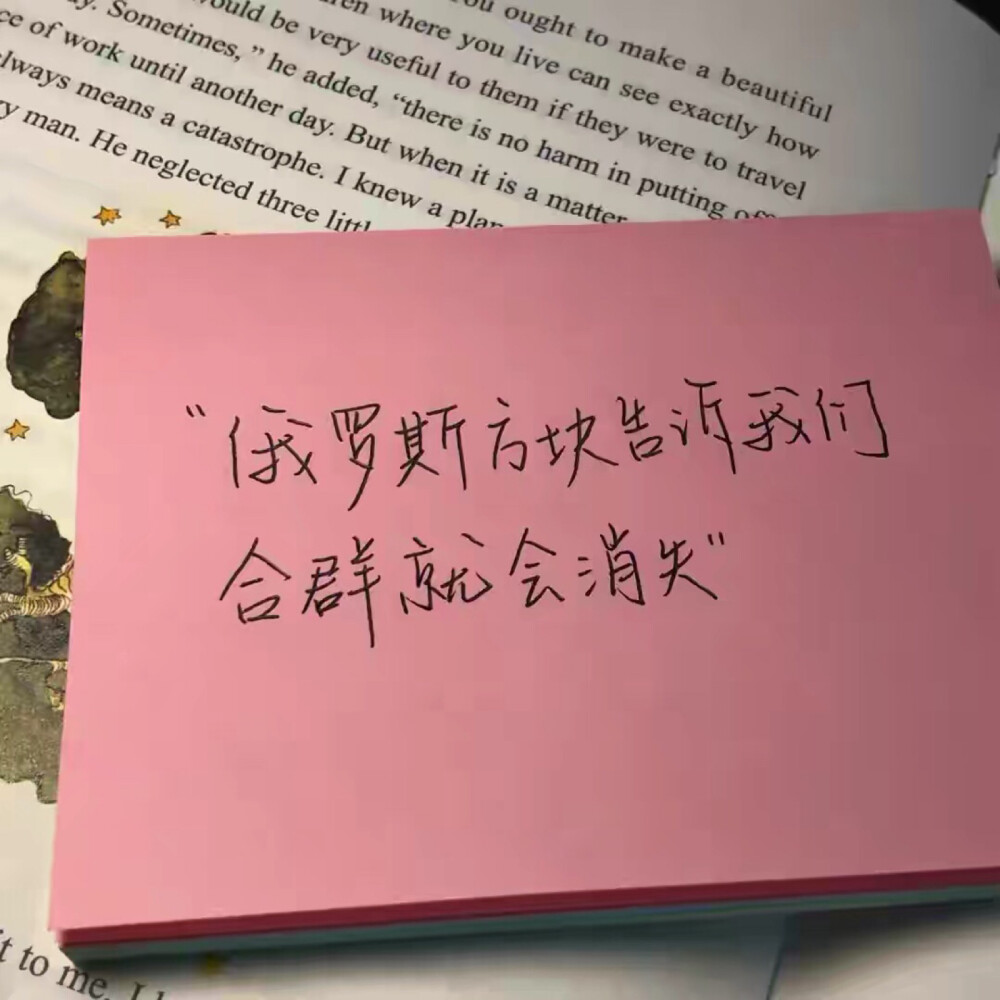 ou ought to make a beautiful
ren where you live can see exactly how
ould be very useful to them if they were to travel
y. Sometimes," he added, "there is no harm in putting off
ce of work until another day. But when it is a matter
lways means a catastrophe. I knew a plan
y man. He neglected three littl
"俄罗斯方块告诉我们
合群就会消失"
it to me. I